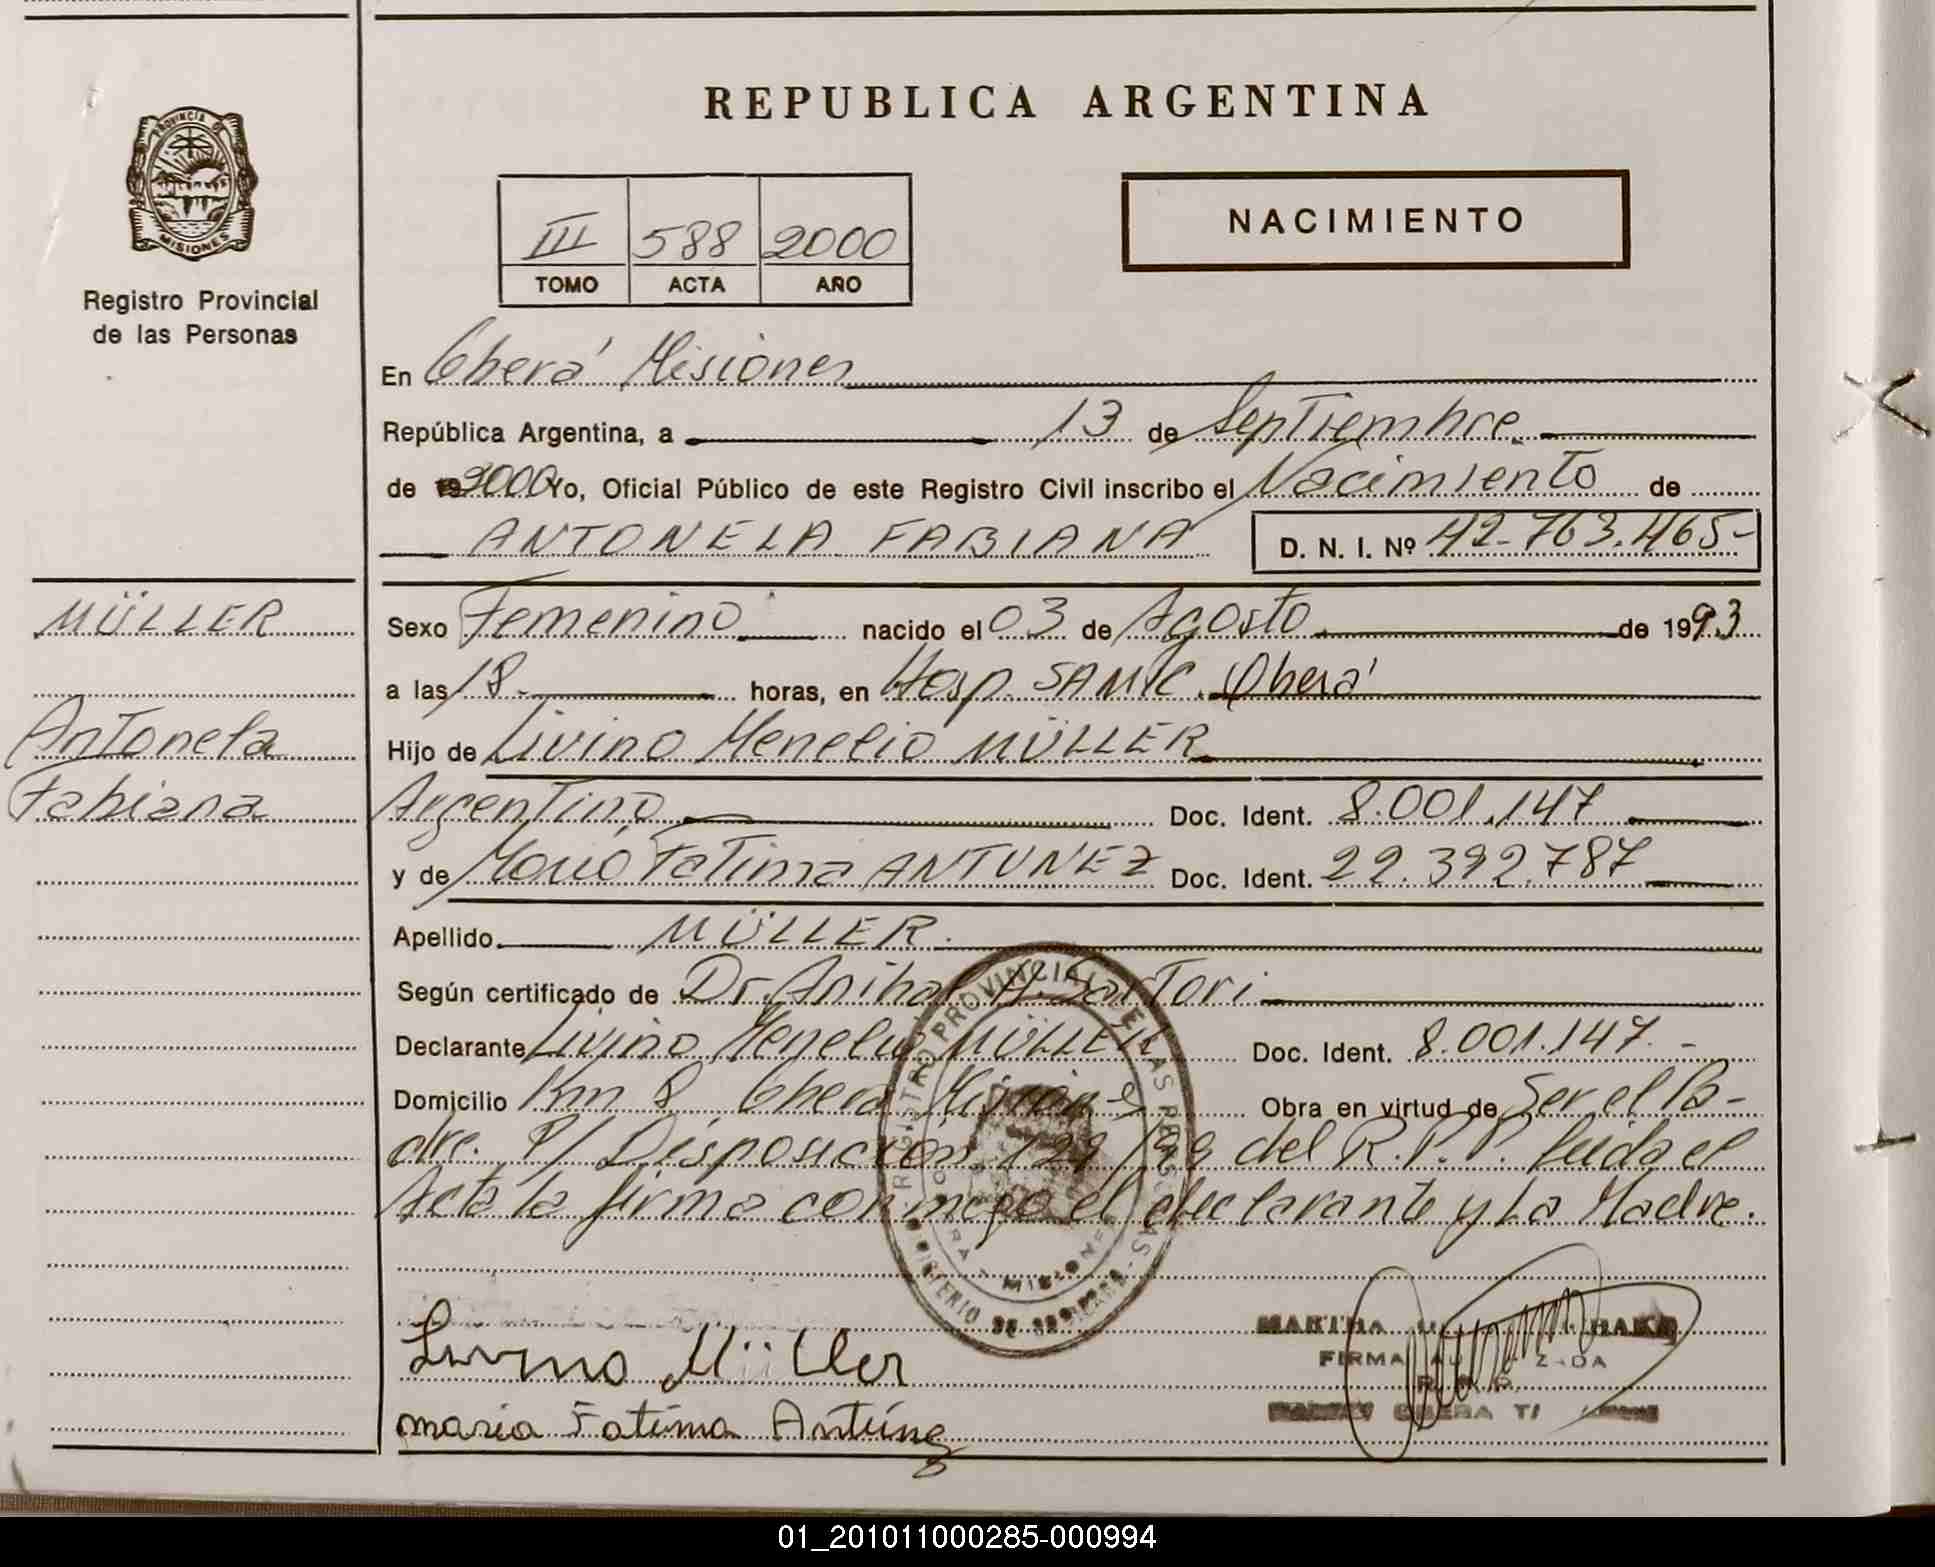 REPUBLICA ARGENTINA
PROVINCIA DE
MISIONES
Registro Provincial
de las Personas
III 588 2000
TOMO ACTA AÑO
NACIMIENTO
En Oberá Misiones
República Argentina, a 13 de Septiembre
de 2000 Yo, Oficial Público de este Registro Civil inscribo el Nacimiento de
ANTONELA FABIANA D. N. I. Nº 42.763.465-
MÜLLER
Antonela
Fabiana
Sexo Femenino nacido el 03 de Agosto de 1993
a las 18 horas, en Hosp. SAMIC. Oberá
Hijo de Livino Menelio MÜLLER
Argentino Doc. Ident. 8.001.147
y de María Fatima ANTUNEZ Doc. Ident. 22.392.787
Apellido MÜLLER.
Según certificado de Dr. Anibal A. Sartori
Declarante Livino Menelio MÜLLER Doc. Ident. 8.001.147.-
Domicilio Km 8 Oberá Misiones Obra en virtud de Ser el Pa-
dre. P/ Disposición 129/99 del R.P.P. leida el
Acta la firma conmigo el declarante y La Madre.
REGISTRO PROVINCIAL DE LAS PERSONAS
MINISTERIO DE
MISIONES
Livino Müller
maria Fatima Antúnez
MARTHA
FIRMA AUTORIZADA
R.P.P.
OBERA
01_201011000285-000994